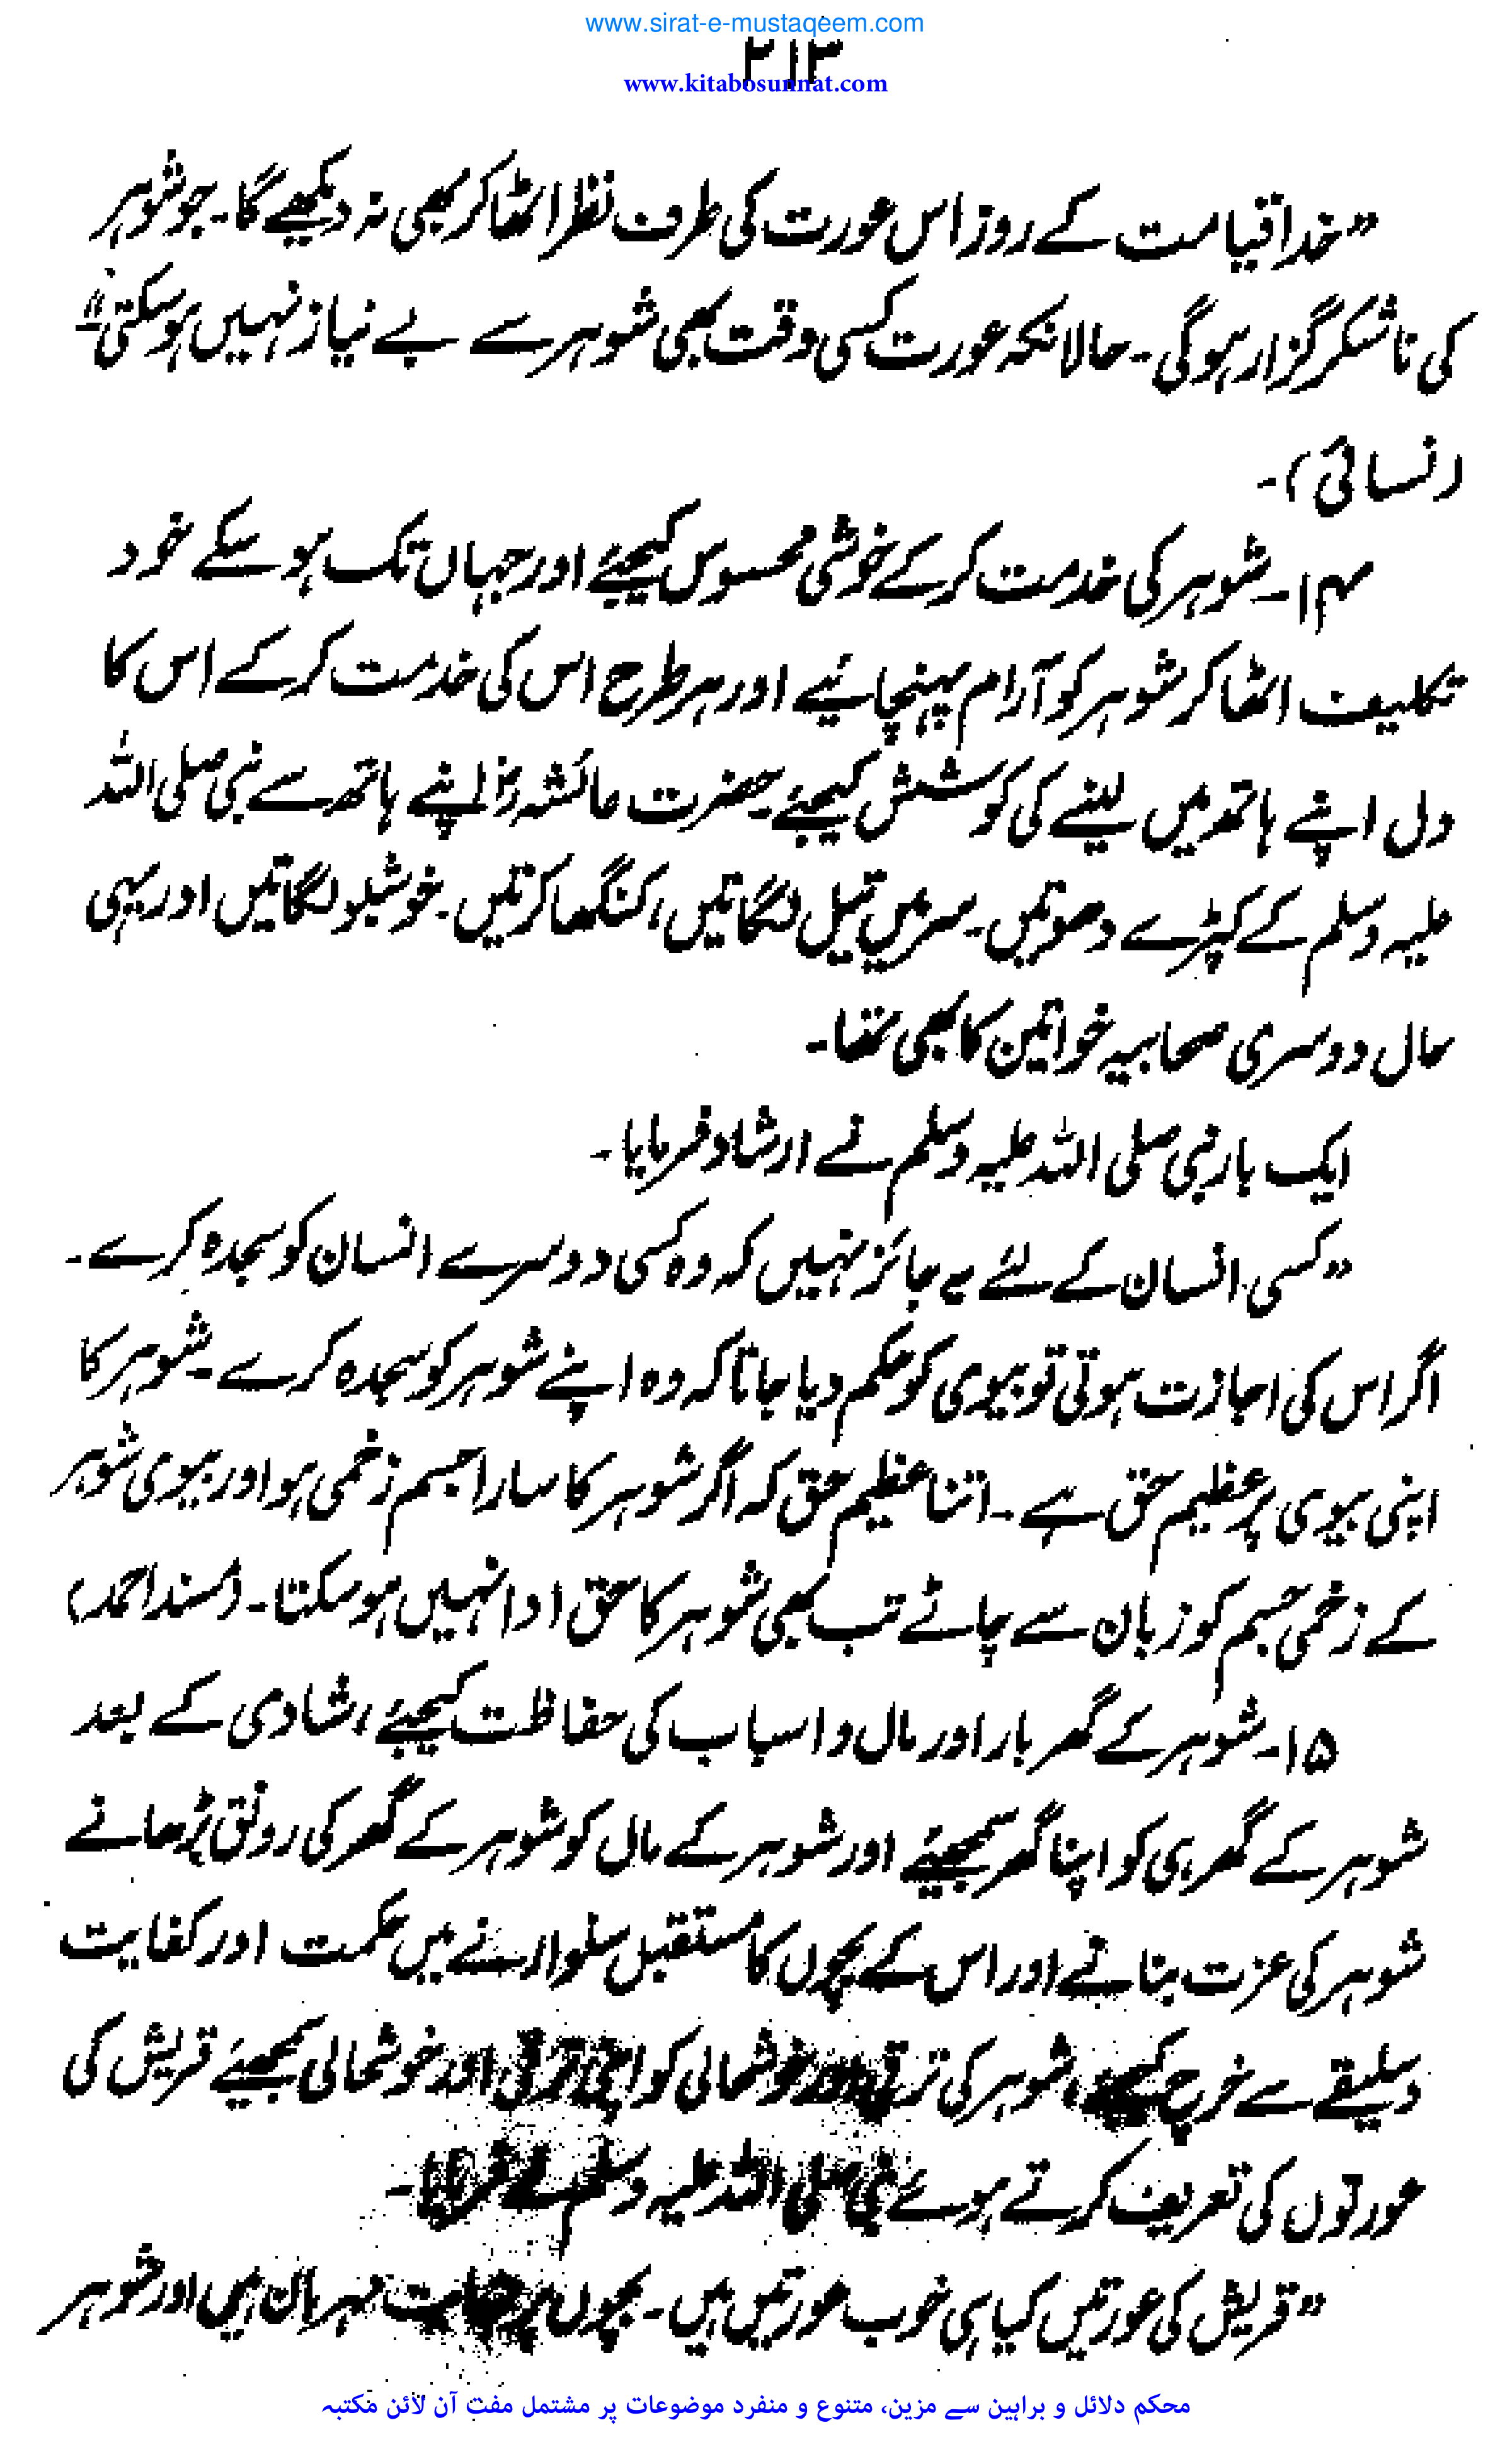 www.sirat-e-mustaqeem.com
۲۱۳
www.kitabosunnat.com
”خدا قیامت کے روز اس عورت کی طرف نظر اٹھا کر بھی نہ دیکھے گا۔ جو شوہر
کی ناشکر گزار ہوگی۔ حالانکہ عورت کسی وقت بھی شوہر سے بے نیاز نہیں ہوسکتی“
(نسائی)۔
۱۴۔ شوہر کی خدمت کرکے خوشی محسوس کیجئے اور جہاں تک ہوسکے خود
تکلیف اٹھا کر شوہر کو آرام پہنچائیے اور ہر طرح اس کی خدمت کرکے اس کا
دل اپنے ہاتھ میں لینے کی کوشش کیجئے۔ حضرت عائشہ رض اپنے ہاتھ سے نبی صلی اللہ
علیہ وسلم کے کپڑے دھوتیں۔ سر میں تیل لگاتیں، کنگھا کرتیں۔ خوشبو لگاتیں اور یہی
حال دوسری صحابیہ خواتین کا بھی تھا۔
ایک بار نبی صلی اللہ علیہ وسلم نے ارشاد فرمایا۔
”کسی انسان کے لئے یہ جائز نہیں کہ وہ کسی دوسرے انسان کو سجدہ کرے۔
اگر اس کی اجازت ہوتی تو بیوی کو حکم دیا جاتا کہ وہ اپنے شوہر کو سجدہ کرے۔ شوہر کا
اپنی بیوی پر عظیم حق ہے۔ اتنا عظیم حق کہ اگر شوہر کا سارا جسم زخمی ہو اور بیوی شوہر
کے زخمی جسم کو زبان سے چاٹے تب بھی شوہر کا حق ادا نہیں ہوسکتا۔ (مسند احمد)
۱۵۔ شوہر کے گھر بار اور مال و اسباب کی حفاظت کیجئے، شادی کے بعد
شوہر کے گھر ہی کو اپنا گھر سمجھیئے اور شوہر کے مال کو شوہر کے گھر کی رونق بڑھانے
شوہر کی عزت بنانے اور اس کے بچوں کا مستقبل سنوارنے میں حکمت اور کفایت
وسلیقے سے خرچ کیجئے، شوہر کی ترقی اور خوشحالی کو اپنی ترقی اور خوشحالی سمجھیئے قریش کی
عورتوں کی تعریف کرتے ہوئے نبی صلی اللہ علیہ وسلم نے فرمایا۔
”قریش کی عورتیں کیا ہی خوب عورتیں ہیں۔ بچوں پر نہایت مہربان ہیں اور شوہر
محکم دلائل و براہین سے مزین، متنوع و منفرد موضوعات پر مشتمل مفت آن لائن مکتبہ